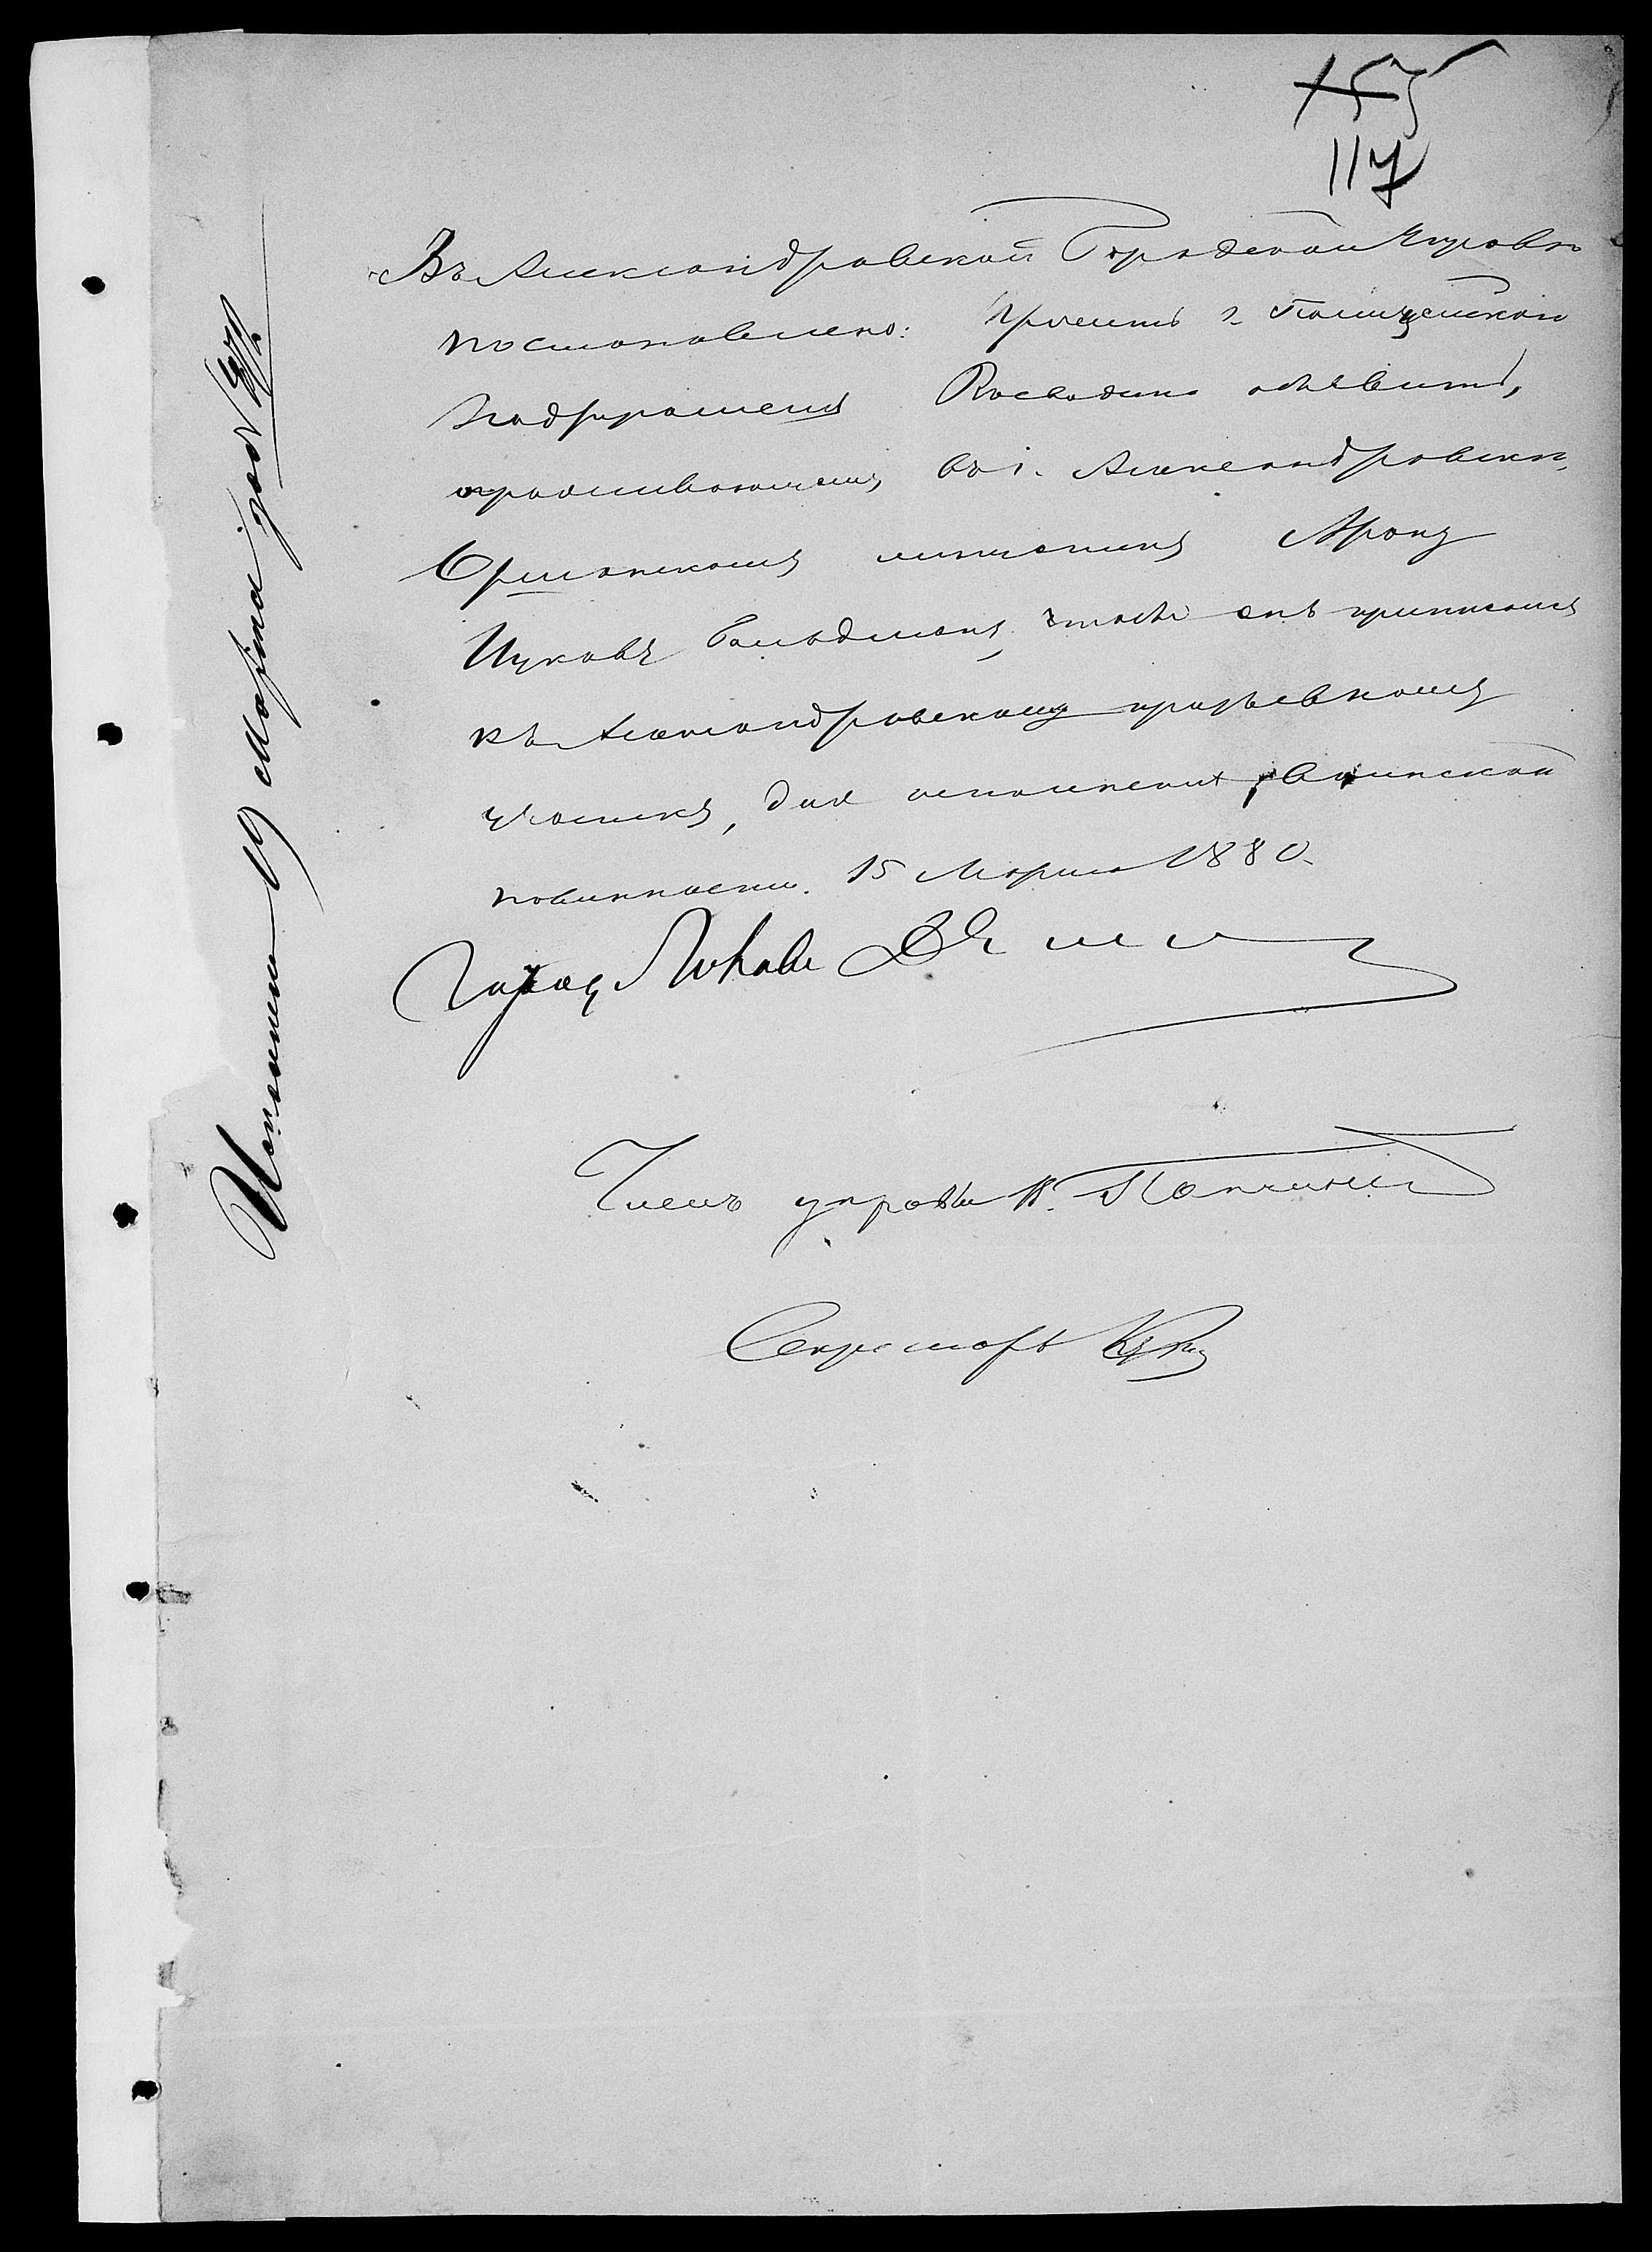 155
117
Въ Александровской Городской Управѣ
постановлено: просить г. Полицейскаго
Надзирателя объявить,
проживающему въ г. Александровскѣ,
мѣщанину Арону
Ицкову Гольдману, чтобы онъ приписался
къ Александровскому призывному
участку, для исполненія воинской
повинности. 15 Марта 1880.
Членъ управы
Секретарь
Исполнено 19 Марта за №